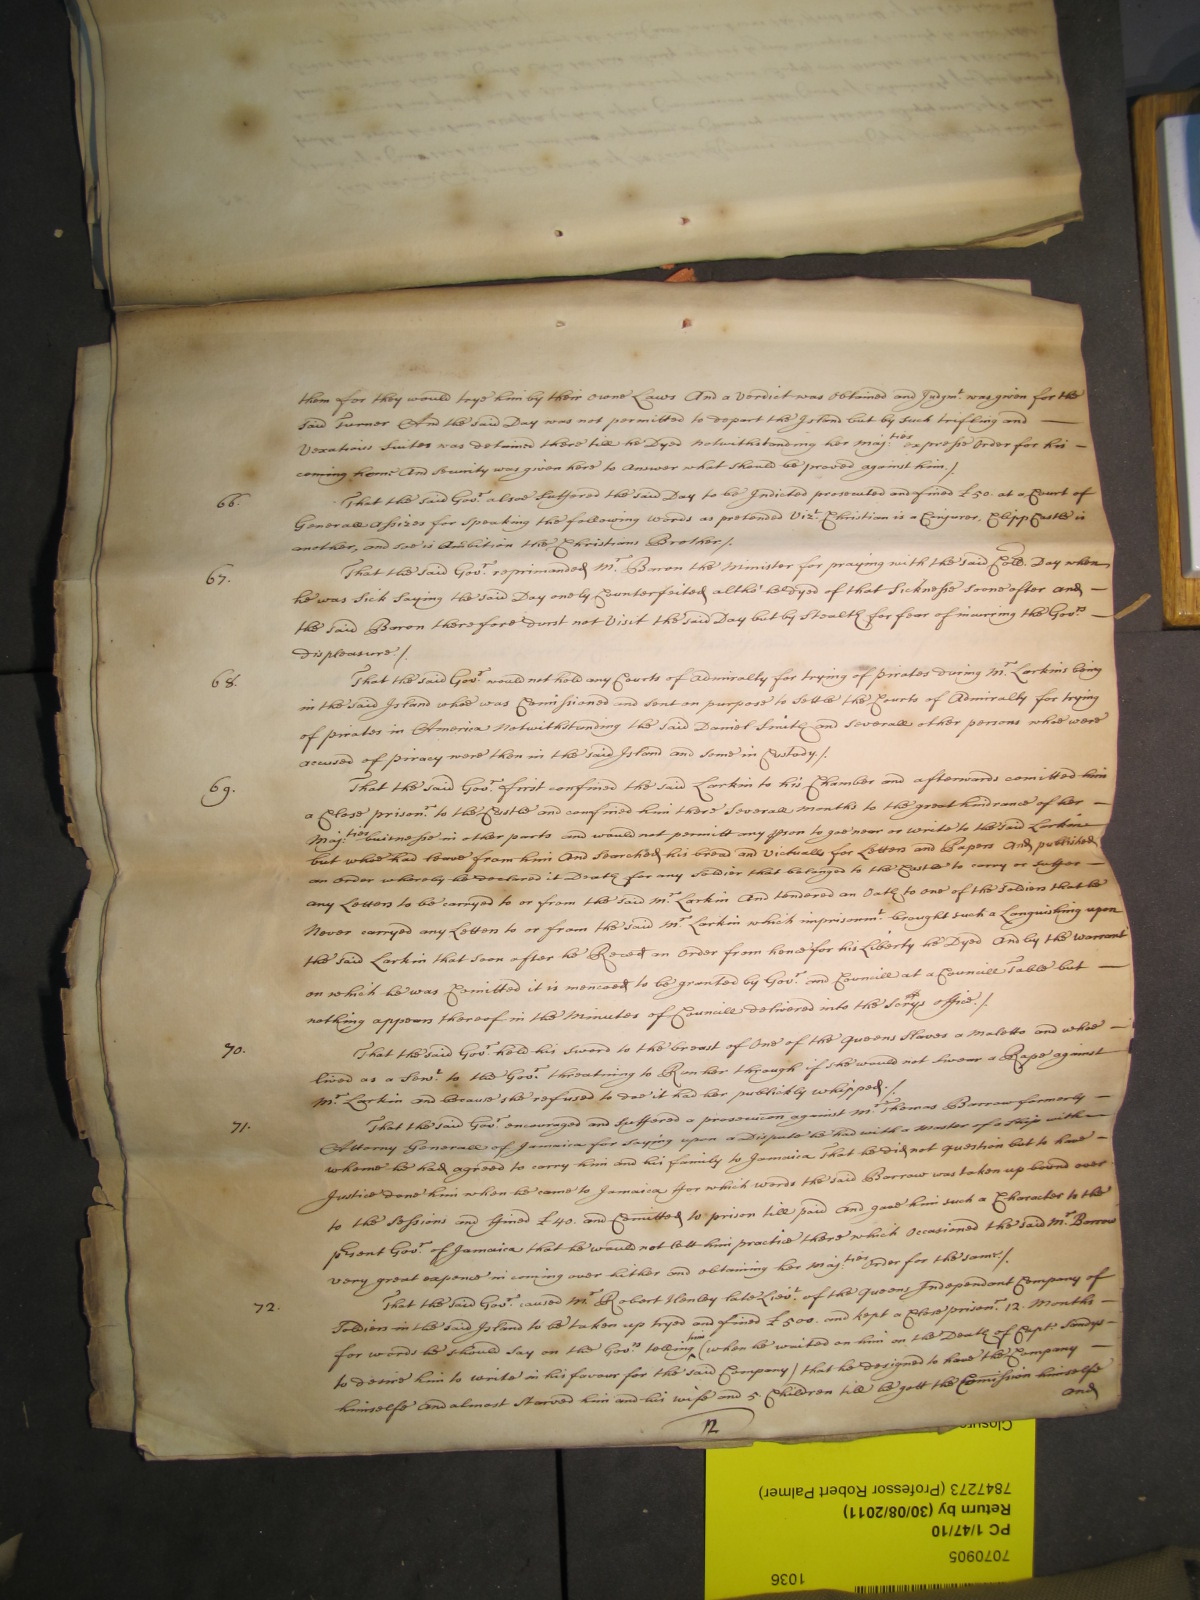 them for they would trye him by their owne Laws And a Verdict was obtained and Judgmt. was given for the
said Turner And the said Day was not permitted to depart the Island but by such trifling and
Vexatious Suites was detained there till he Dyed Notwithstanding her Maj:ties expresse Order for his
coming home And Security was given here to Answer what should be proved against him./
66. That the said Govr. alsoe Suffered the said Day to be Indicted prosecuted and fined £50. at a Court of
Generall Assizes for speaking the following words as pretended Vizt. Christian is a Conjurer, Clipp Castle is
another, and soe is Ambition the Christians Brother/.
67. That the said Govr. reprimanded Mr. Baron the Minister for praying with the said Coll. Day when
he was sick saying the said Day onely Counterfeited altho' he dyed of that Sicknesse soone after and
the said Baron therefore durst not Visit the said Day but by Stealth for fear of incuring the Govrs.
displeasure./
68. That the said Govr. would not hold any Courts of Admiralty for trying of pirates during Mr. Larkins being
in the said Island whoe was Comissioned and sent on purpose to settle the Courts of Admiralty for trying
of pirates in America Notwithstanding the said Daniel Smith and severall other persons whoe were
accused of piracy were then in the said Island and some in Custody/.
69. That the said Govr. first confined the said Larkin to his Chamber and afterwards comitted him
a Close prisonr. to the Castle and confined him there severall months to the great hindrance of her
Maj:ties buisnesse in other parts and would not permitt any pson to goe near or write to the said Larkin
but whoe had leave from him And searched his bread and Victualls for Letters and Papers And published
an order whereby he declared it Death for any Soldier that belonged to the Castle to carry or suffer
any Letters to be carryed to or from the said Mr. Larkin And tendered an Oath to one of the Soldiers that he
Never carryed any Letters to or from the said Mr. Larkin which imprisonmt. brought such a Languishing upon
the said Larkin that soon after he Reced an Order from hence for his Liberty he Dyed And by the warrant
on which he was Comitted it is mencoed to be granted by Govr. and Councill at a Councill Table but
nothing appears thereof in the Minutes of Councill delivered into the Secrys office./.
70. That the said Govr. held his Sword to the breast of One of the Queens Slaves a Maletto and whoe
lived as a Servt. to the Govr. threatning to Run her through if she would not swear a Rape against
Mr. Larkin and because she refused to doe it had her publickly whipped./
71. That the said Govr. encouraged and suffered a prosecucon against Mr. Thomas Barrow formerly
Attorny Generall of Jamaica for saying upon a Dispute he had with a Master of a Ship with
whome he had agreed to carry him and his family to Jamaica That he did not question but to have
Justice done him when he came to Jamaica ffor which words the said Barrow was taken up bound over
to the Sessions and ffined £40. and Comitted to prison till paid And gave him such a Character to the
psent Govr. of Jamaica that he would not lett him practice there which Occasioned the said Mr. Barrow
very great expence in coming over hither and obtaining her Maj:ties Order for the same./
72. That the said Govr. caused Mr. Robert Henley late Lievt. of the Queens Independant Company of
Soldiers in the said Island to be taken up tryed and fined £500. and kept a Close prisonr. 12. Months
for words he should say on the Govrs telling him (when he waited on him on the Death of Capt. Sandys
to desire him to write in his favour for the said Company) that he designed to have the Company
himselfe And almost Starved him and his wife and 5 Children till he gott the Comission himselfe
and
12
Closure
7847273 (Professor Robert Palmer)
Return by (30/08/2011)
PC 1/47/10
7070905
1036